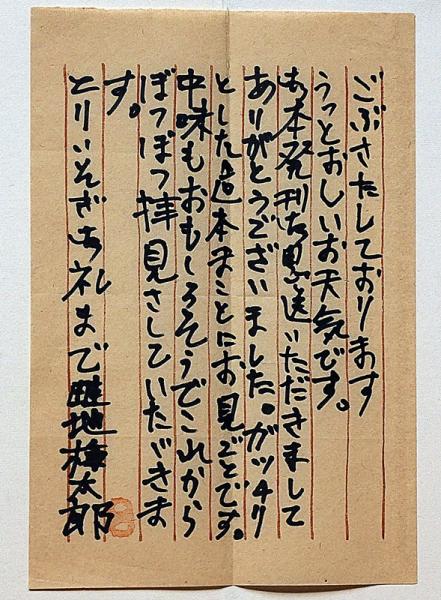 ごぶさたしております
うっとおしいお天気です。
御本発刊お恵送いただきまして
ありがとうございました。ガッチリ
とした造本まことにお見ごとです。
中味もおもしろそうでこれから
ぼつぼつ拝見さしていたゞきま
す。
とりいそぎ御礼まで 畦地梅太郎